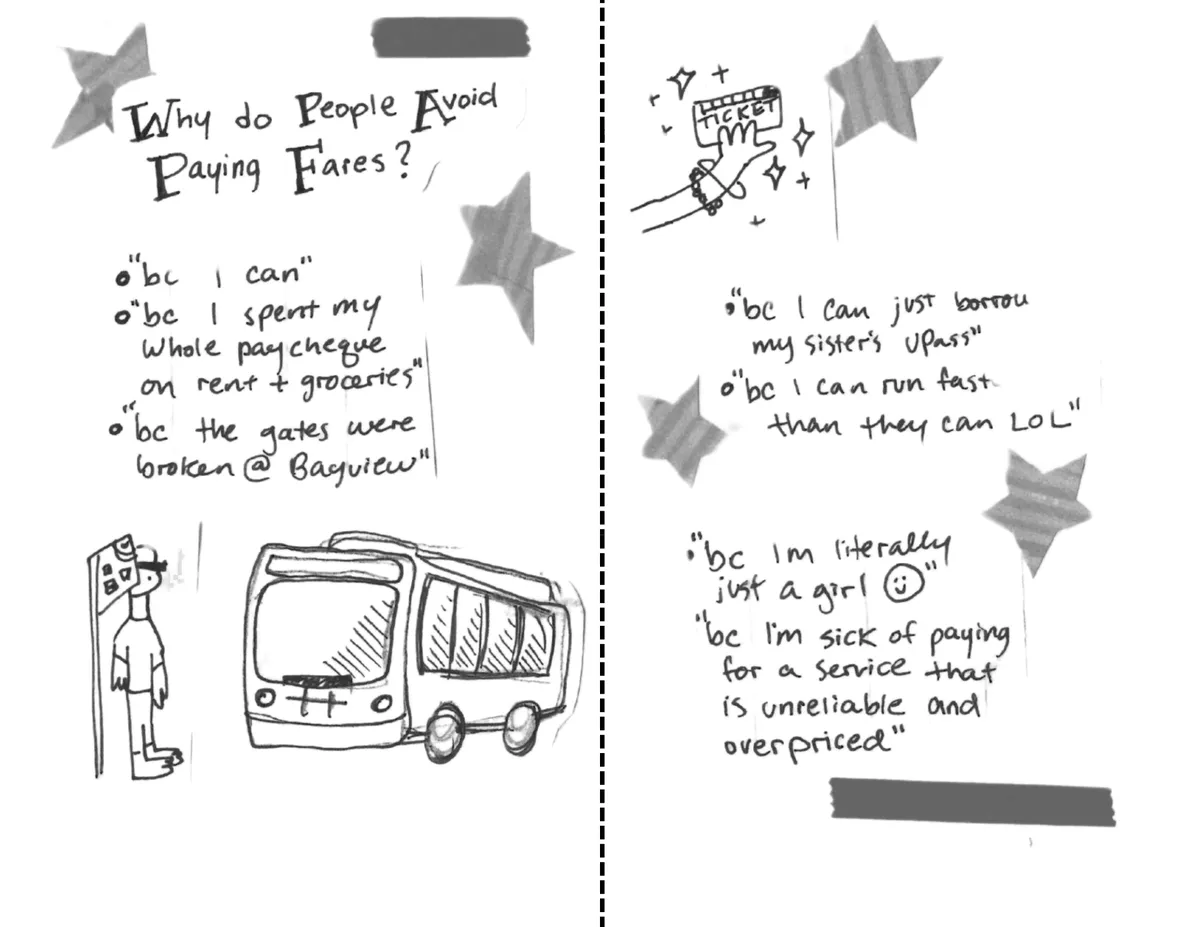 Why do People Avoid
Paying Fares?
"bc I can"
"bc I spent my
whole paycheque
on rent + groceries"
"bc the gates were
broken @ Bayview"
TICKET
"bc I can just borrow
my sister's UPass"
"bc I can run fast
than they can LOL"
"bc Im literally
just a girl ☺"
"bc I'm sick of paying
for a service that
is unreliable and
overpriced"